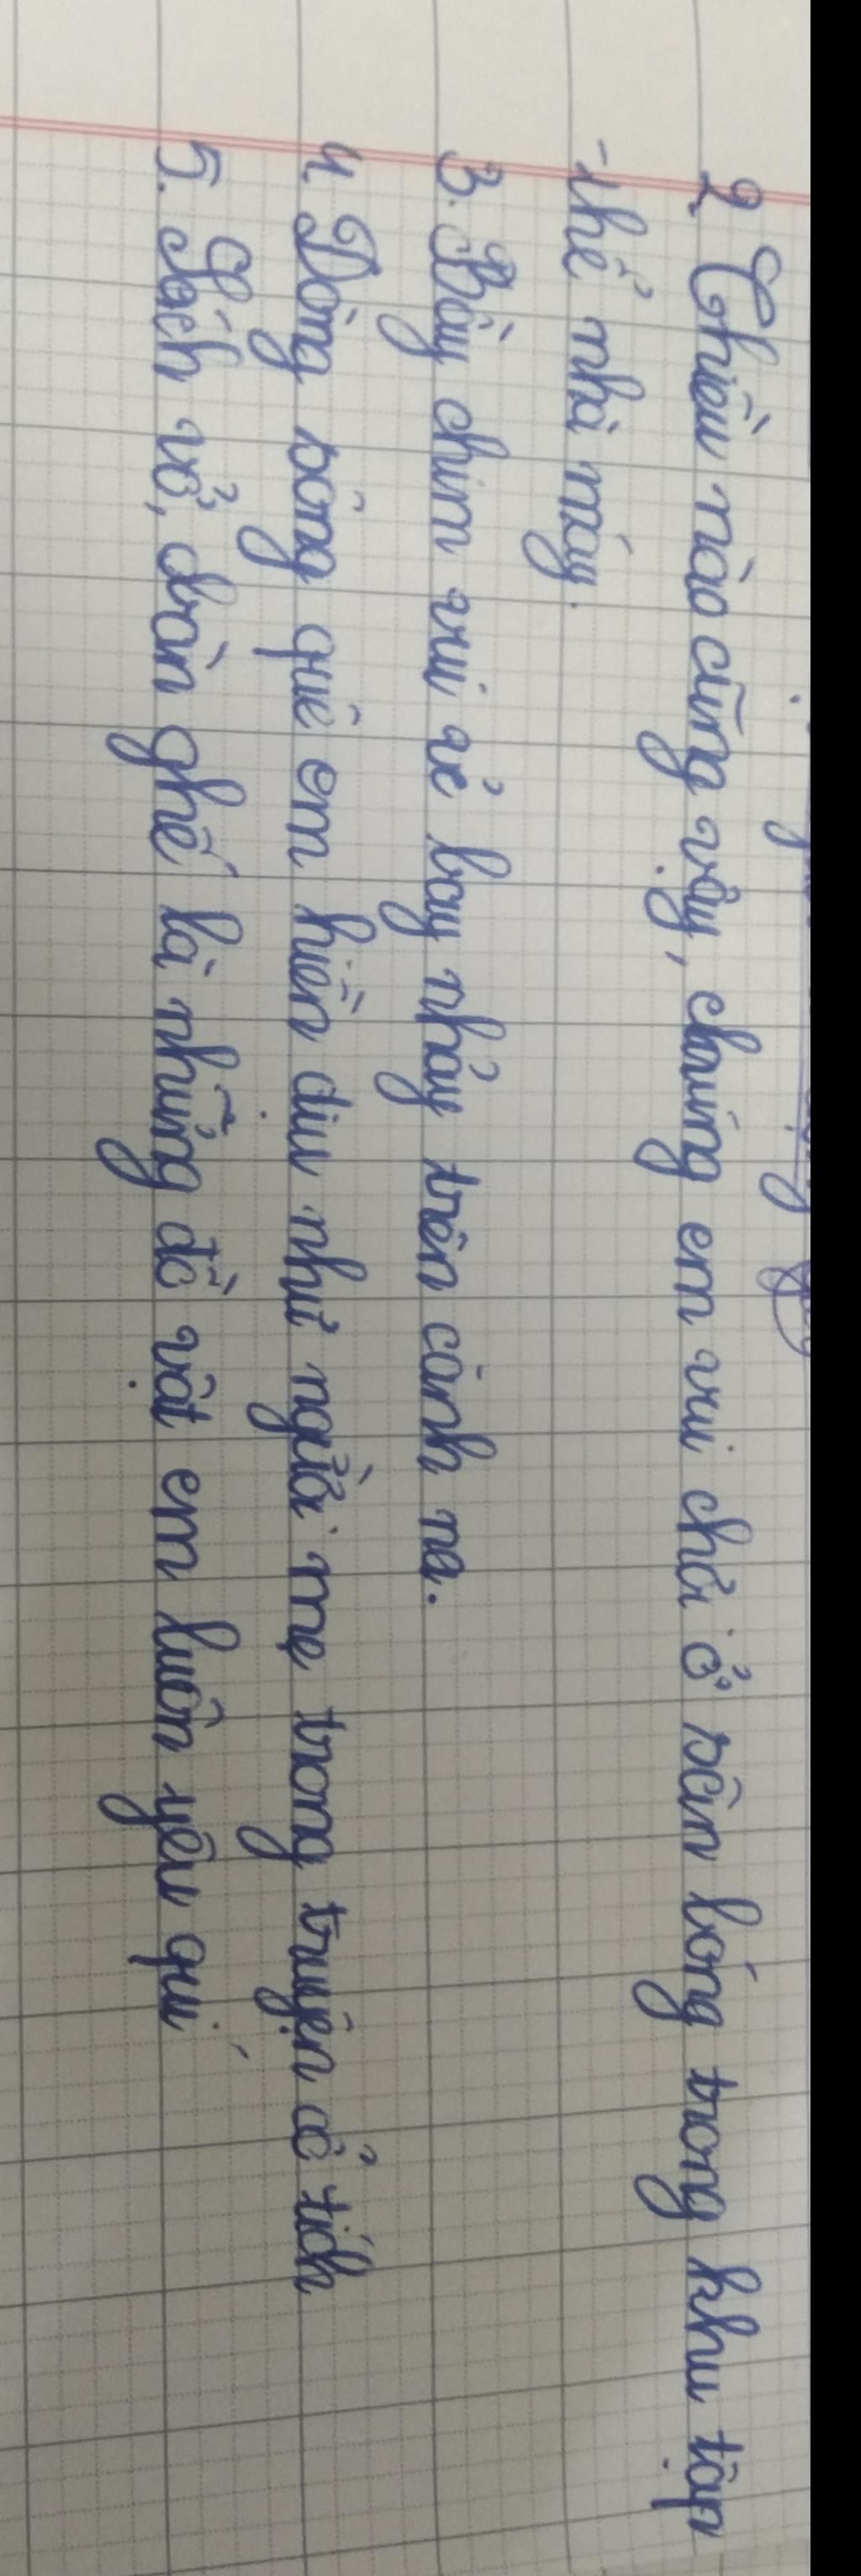 2. Chiều nào cũng vậy, chúng em vui chơi ở sân bóng trong khu tập
-thể nhà máy.
3. Bầy chim vui vẻ bay nhảy trên cành na.
4. Dòng sông quê em hiền dịu như người mẹ trong truyện cổ tích
5. Sách vở, bàn ghế là những đồ vật em luôn yêu quí